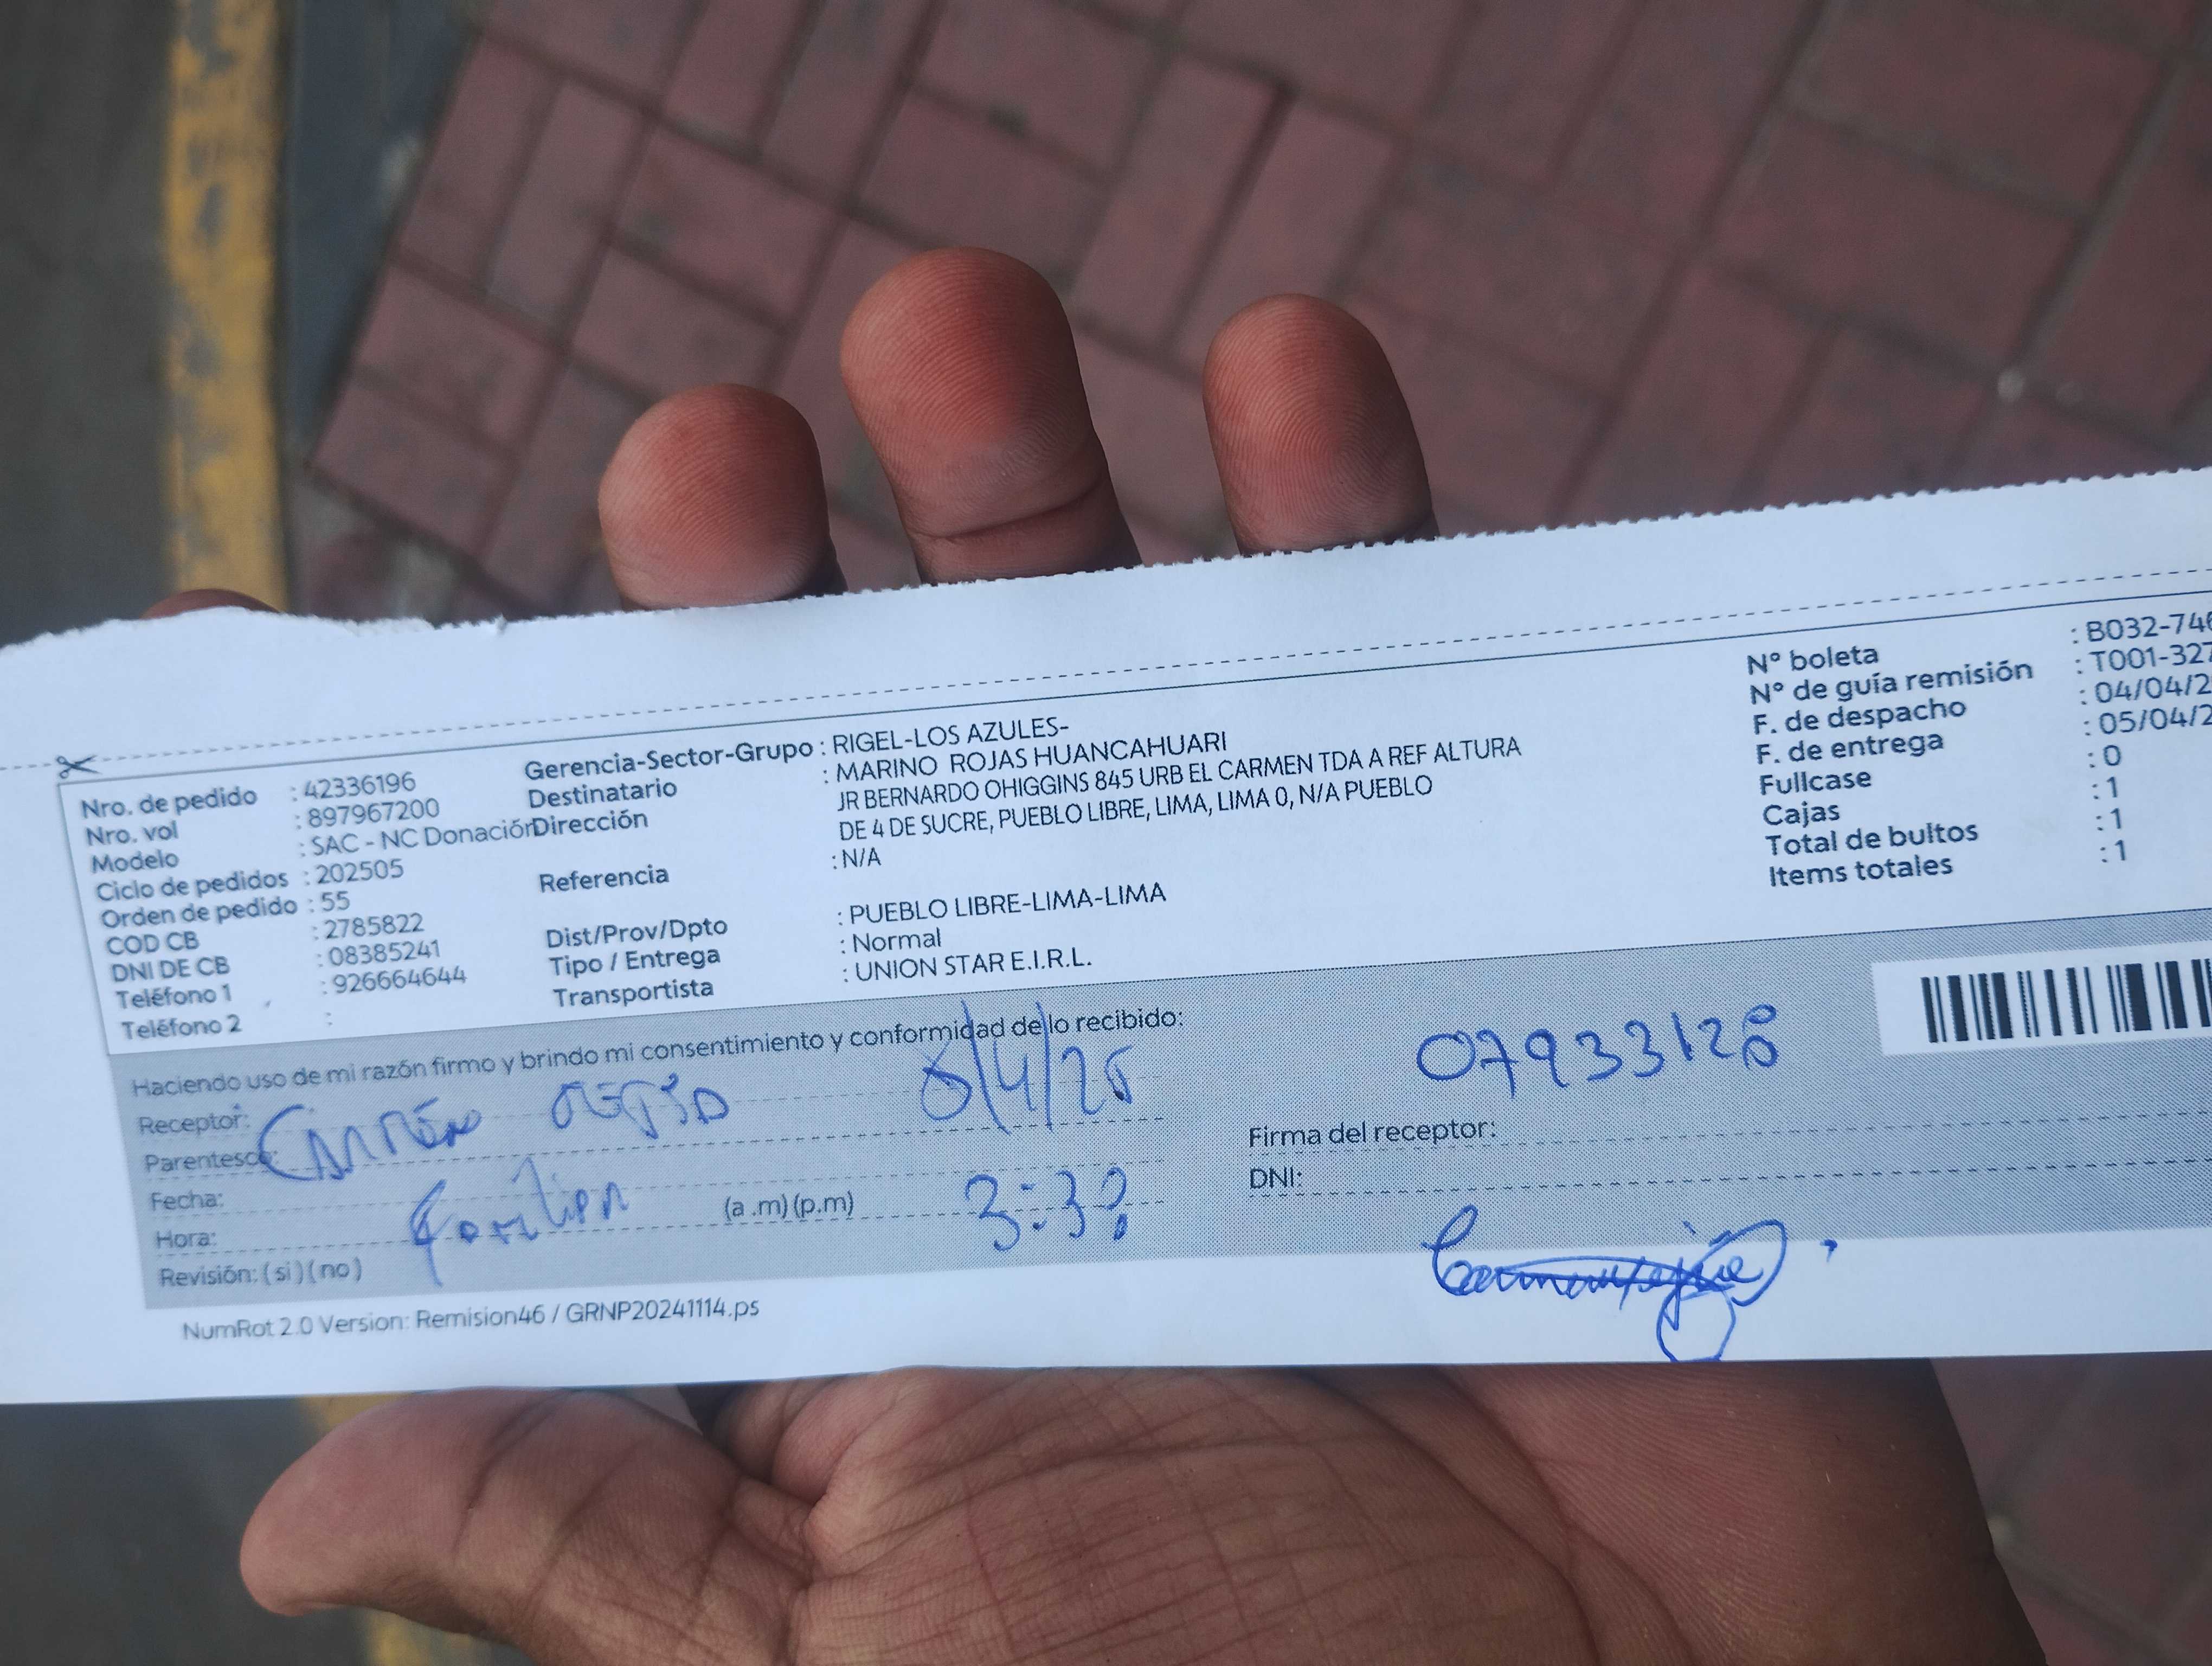 Nro. de pedido : 42336196
Nro. vol : 897967200
Modelo : SAC - NC Donación
Ciclo de pedidos : 202505
Orden de pedido : 55
COD CB : 2785822
DNI DE CB : 08385241
Teléfono 1 : 926664644
Teléfono 2 :
Gerencia-Sector-Grupo : RIGEL-LOS AZULES-
Destinatario : MARINO ROJAS HUANCAHUARI
Dirección JR BERNARDO OHIGGINS 845 URB EL CARMEN TDA A REF ALTURA
DE 4 DE SUCRE, PUEBLO LIBRE, LIMA, LIMA 0, N/A PUEBLO
Referencia : N/A
Dist/Prov/Dpto : PUEBLO LIBRE-LIMA-LIMA
Tipo / Entrega : Normal
Transportista : UNION STAR E.I.R.L.
N° boleta : B032-746
N° de guía remisión : T001-327
F. de despacho : 04/04/2
F. de entrega : 05/04/2
Fullcase : 0
Cajas : 1
Total de bultos : 1
Items totales : 1
Haciendo uso de mi razón firmo y brindo mi consentimiento y conformidad de lo recibido:
Receptor: Carmén
Parentesco:
Fecha:
Hora: (a .m) (p.m) 3:3
Revisión: ( si ) ( no )
07933128
Firma del receptor:
DNI:
NumRot 2.0 Version: Remision46 / GRNP20241114.ps